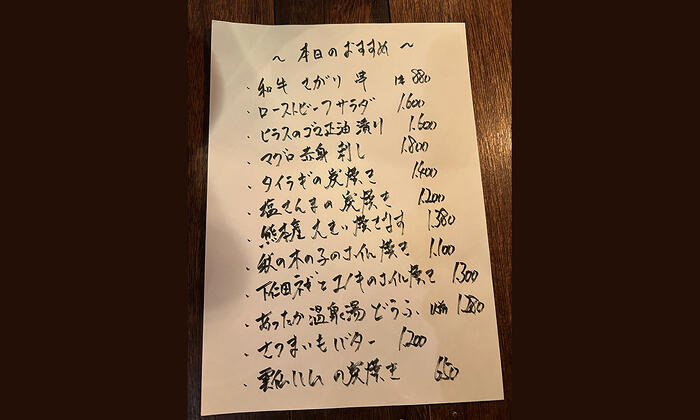 ~ 本日のおすすめ ~
・和牛 さがり 串 1本 880
・ローストビーフサラダ 1.600
・ヒラスのゴマ正油 漬け 1.600
・マグロ 赤身 刺し 1.800
・タイラギの炭焼き 1.400
・塩さんまの炭焼き 1.200
・熊本産 大きい 焼きなす 1.380
・秋の木の子のホイル焼き 1.100
・下仁田ネギとエノキのホイル焼き 1300
・あったか 温泉湯どうふ 1.280
・さつまいもバター 1200
・の炭焼き 650